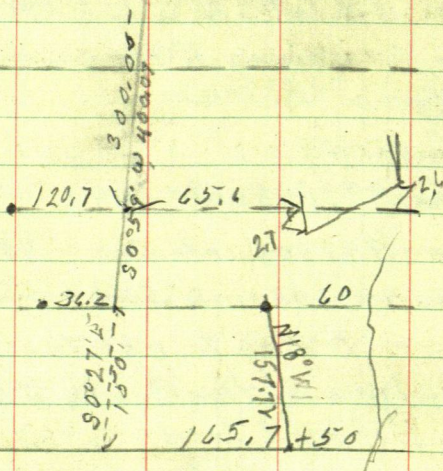 300.00
S 0°59' W 400.07
120.7
65.6
27
2,6
36.2
60
S 0°27' E
150.-
N 18° W
157.7
165.7 + 50